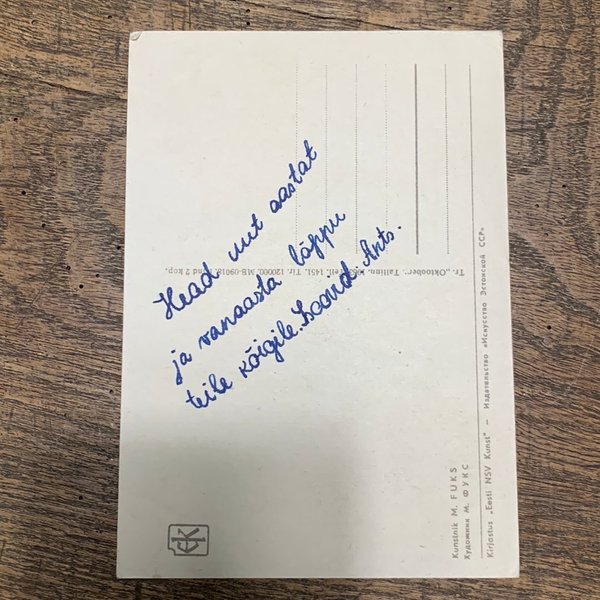 Head uut aastat
ja vanaasta lõppu
teile kõigile. Loorid. Ants.
Kunstnik M. FUKS
Художник М. ФУКС
Kirjastus „Eesti NSV Kunst" — Издательство «Искусство Эстонской ССР»
Tr. „Oktoober". Tallinn, Tell. 1451. Tir. 120000. MB-09018. Hind 2 kop.
EK